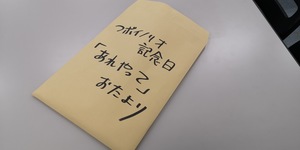 つボイノリオ
記念日
「あれやって」
おたより